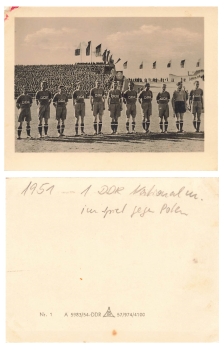 1951 – 1 DDR Nationalm.
im spiel gegen Polen
Nr. 1 A 5193/54-DDR 57/974/4100